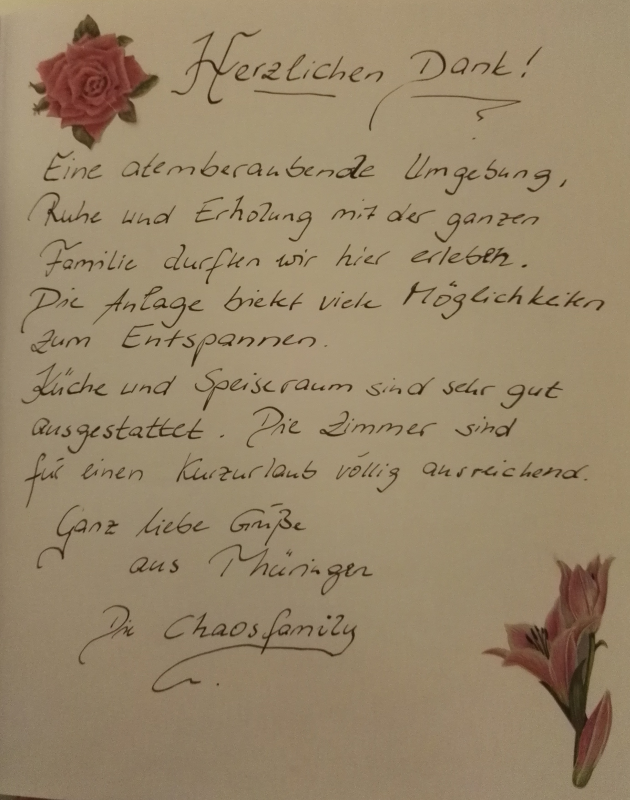 Herzlichen Dank!
Eine atemberaubende Umgebung,
Ruhe und Erholung mit der ganzen
Familie durften wir hier erleben.
Die Anlage bietet viele Möglichkeiten
zum Entspannen.
Küche und Speiseraum sind sehr gut
ausgestattet. Die Zimmer sind
für einen Kurzurlaub völlig ausreichend.
Ganz liebe Grüße
aus Thüringen
Die Chaosfamily